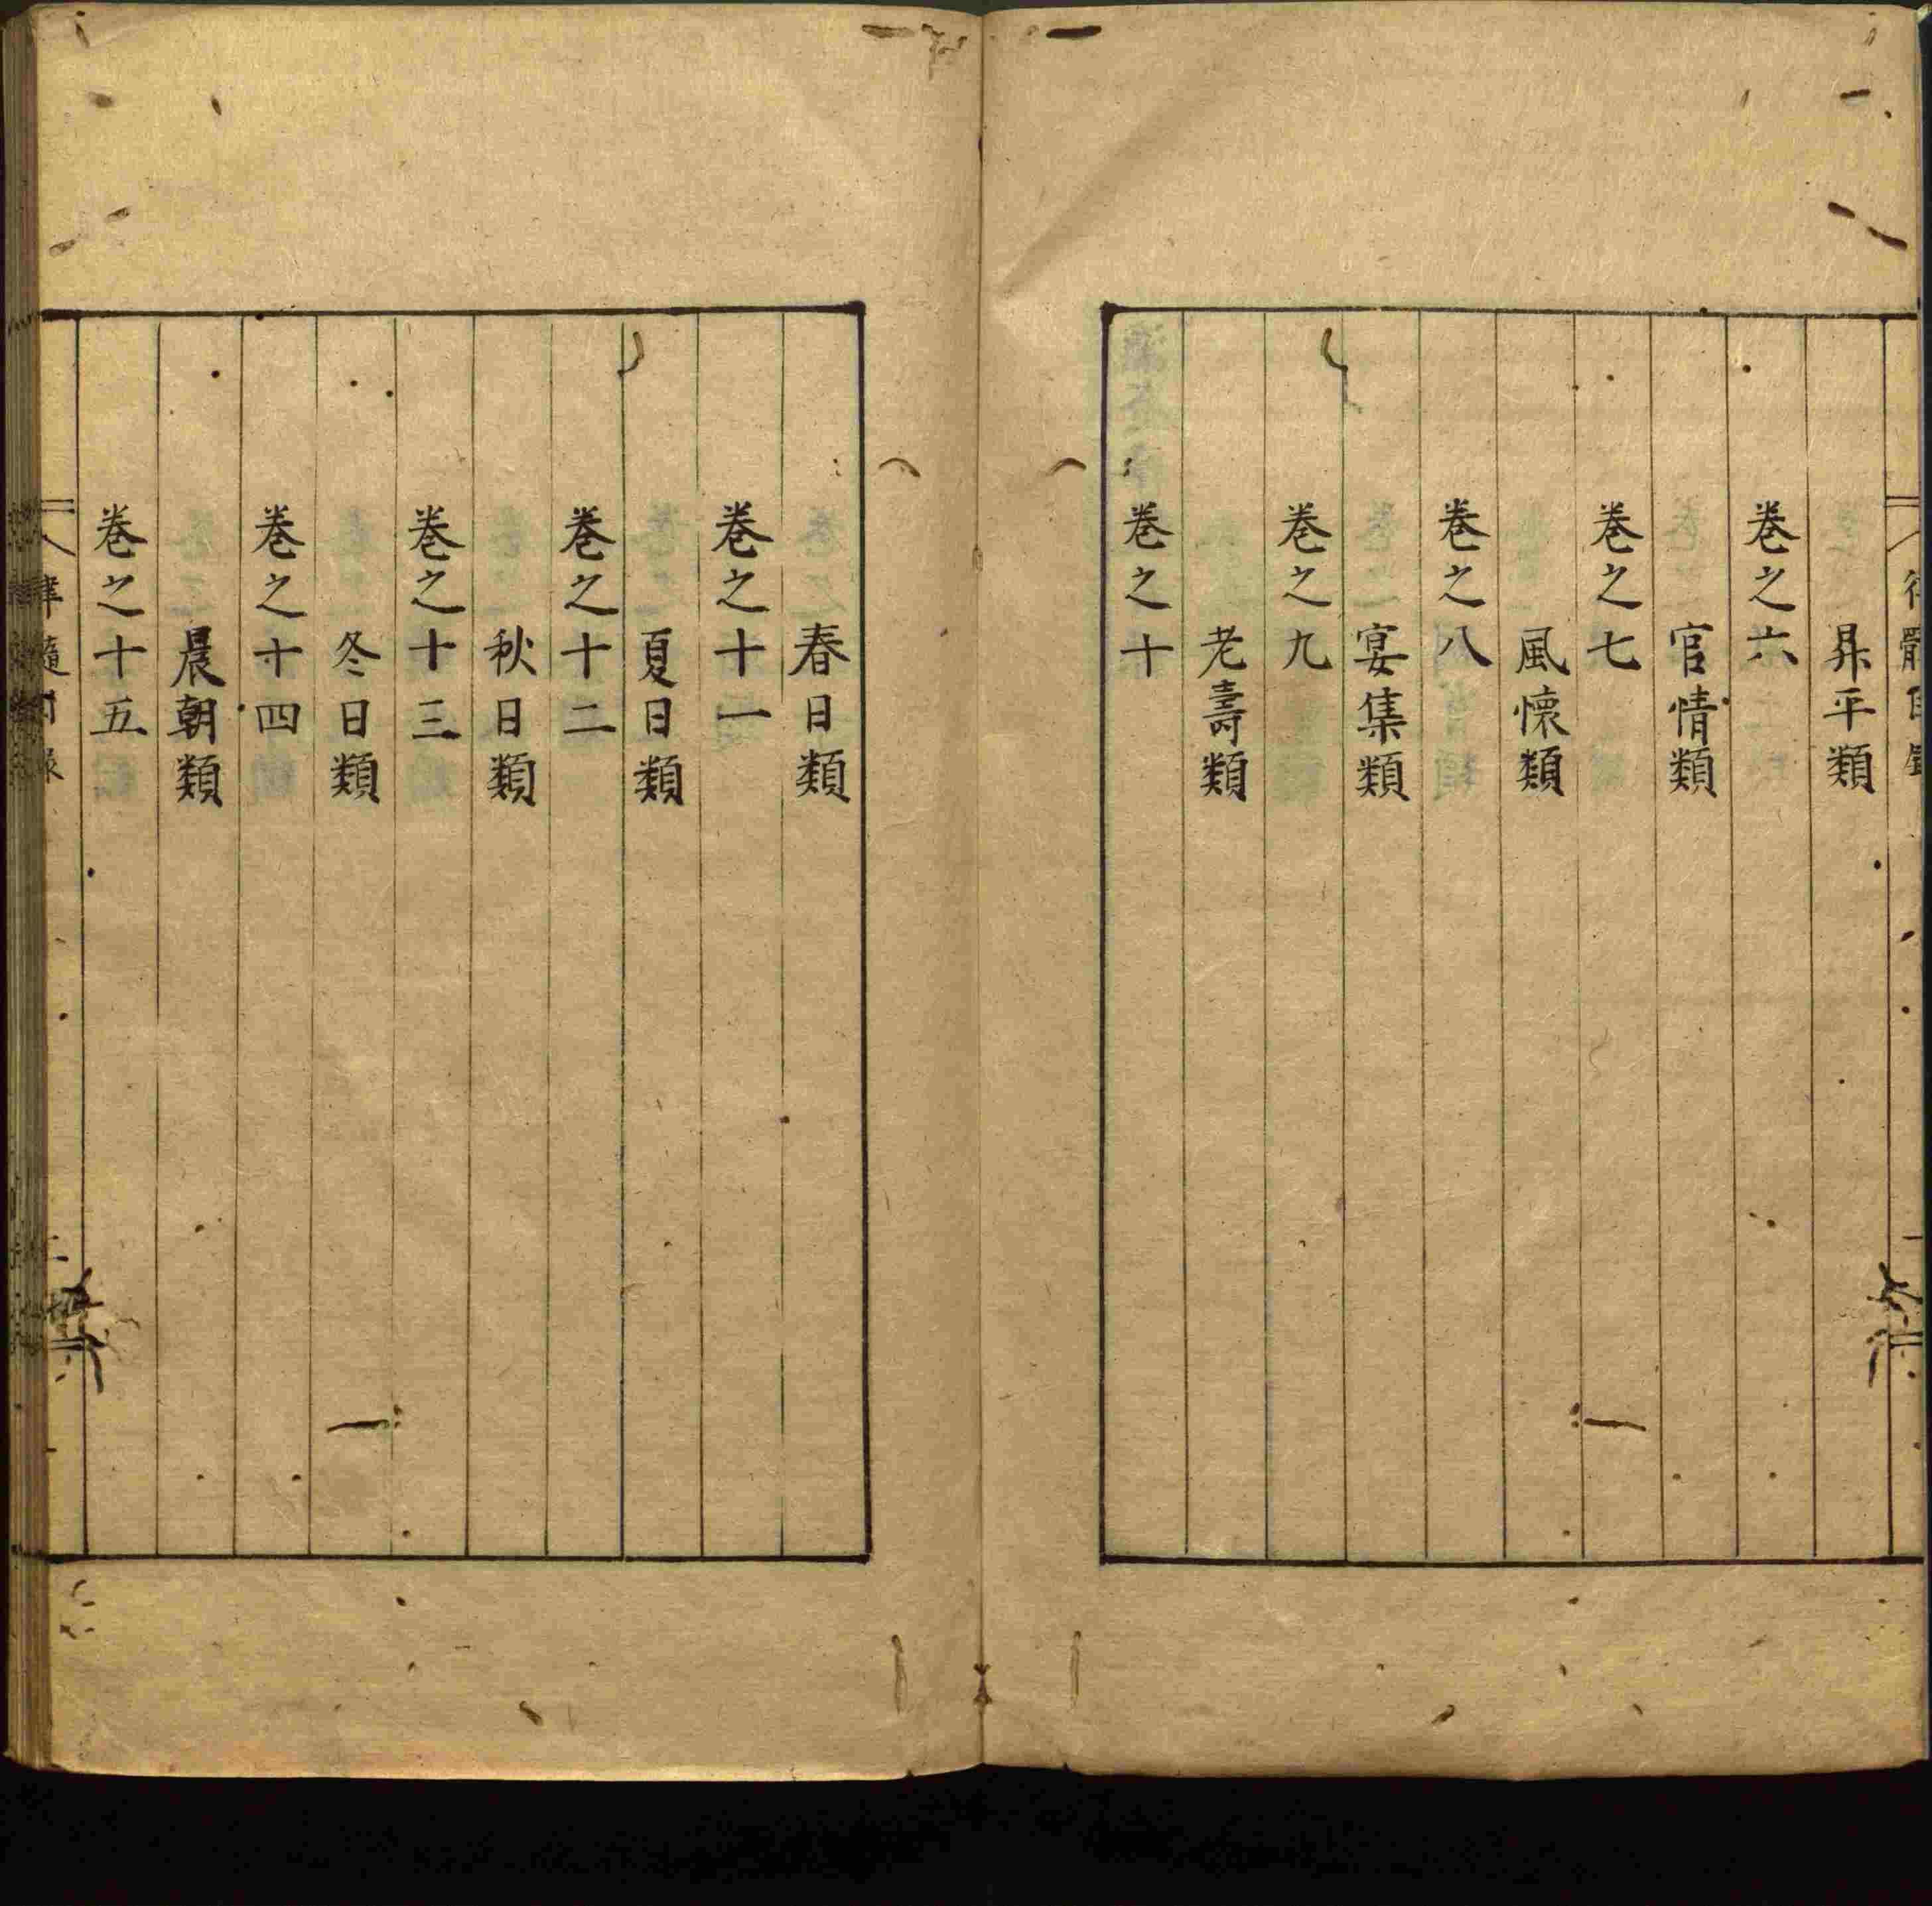 昇平類
卷之六
官情類
卷之七
風懷類
卷之八
宴集類
卷之九
老壽類
卷之十
春日類
卷之十一
夏日類
卷之十二
秋日類
卷之十三
冬日類
卷之十四
晨朝類
卷之十五